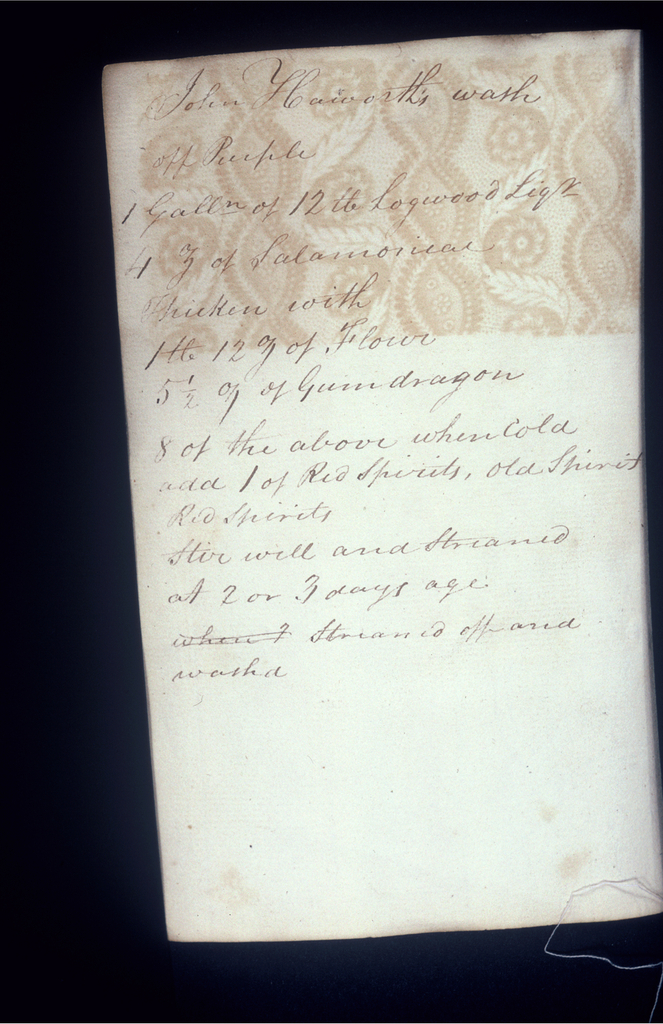 John Haworth's wash
off Purple
1 Galln of 12 lb Logwood Liqr
4 ℥ of Salamoniac
Thicken with
1 lb 12 ℥ of Flour
5 1/2 ℥ of Gumdragon
8 of the above when Cold
add 1 of Red Spirits, old Spirits
Red Spirits
Stir will and Streamed
at 2 or 3 days age
when ? Streamed off and
washd